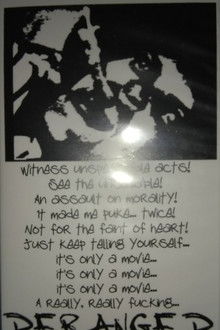 Witness unspeakable acts!
See the unwatchable!
An assault on morality!
It made me puke... twice!
Not for the faint of heart!
Just keep telling yourself...
it's only a movie...
it's only a movie...
it's only a movie...
A really, really fucking...
DERANGED